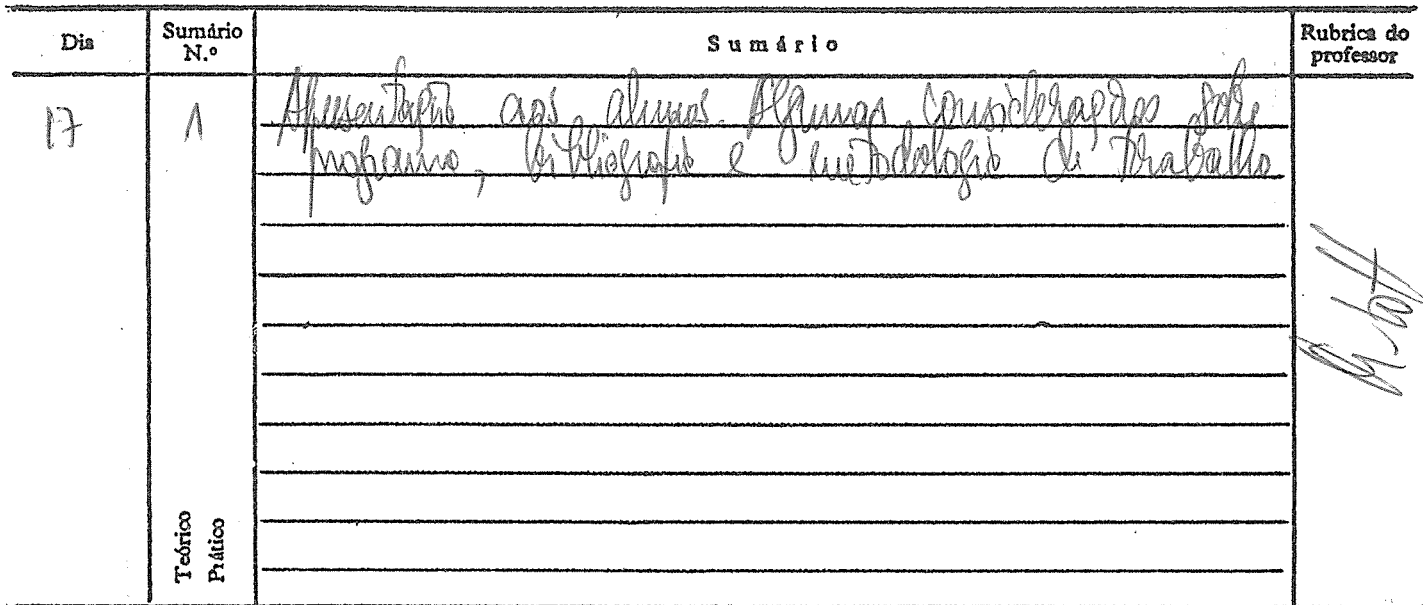 Dia Sumário N.º Sumário Rubrica do professor
17 1 Apresentação aos alunos. Algumas considerações sobre
programa, bibliografia e metodologia de trabalho
Teórico
Prático